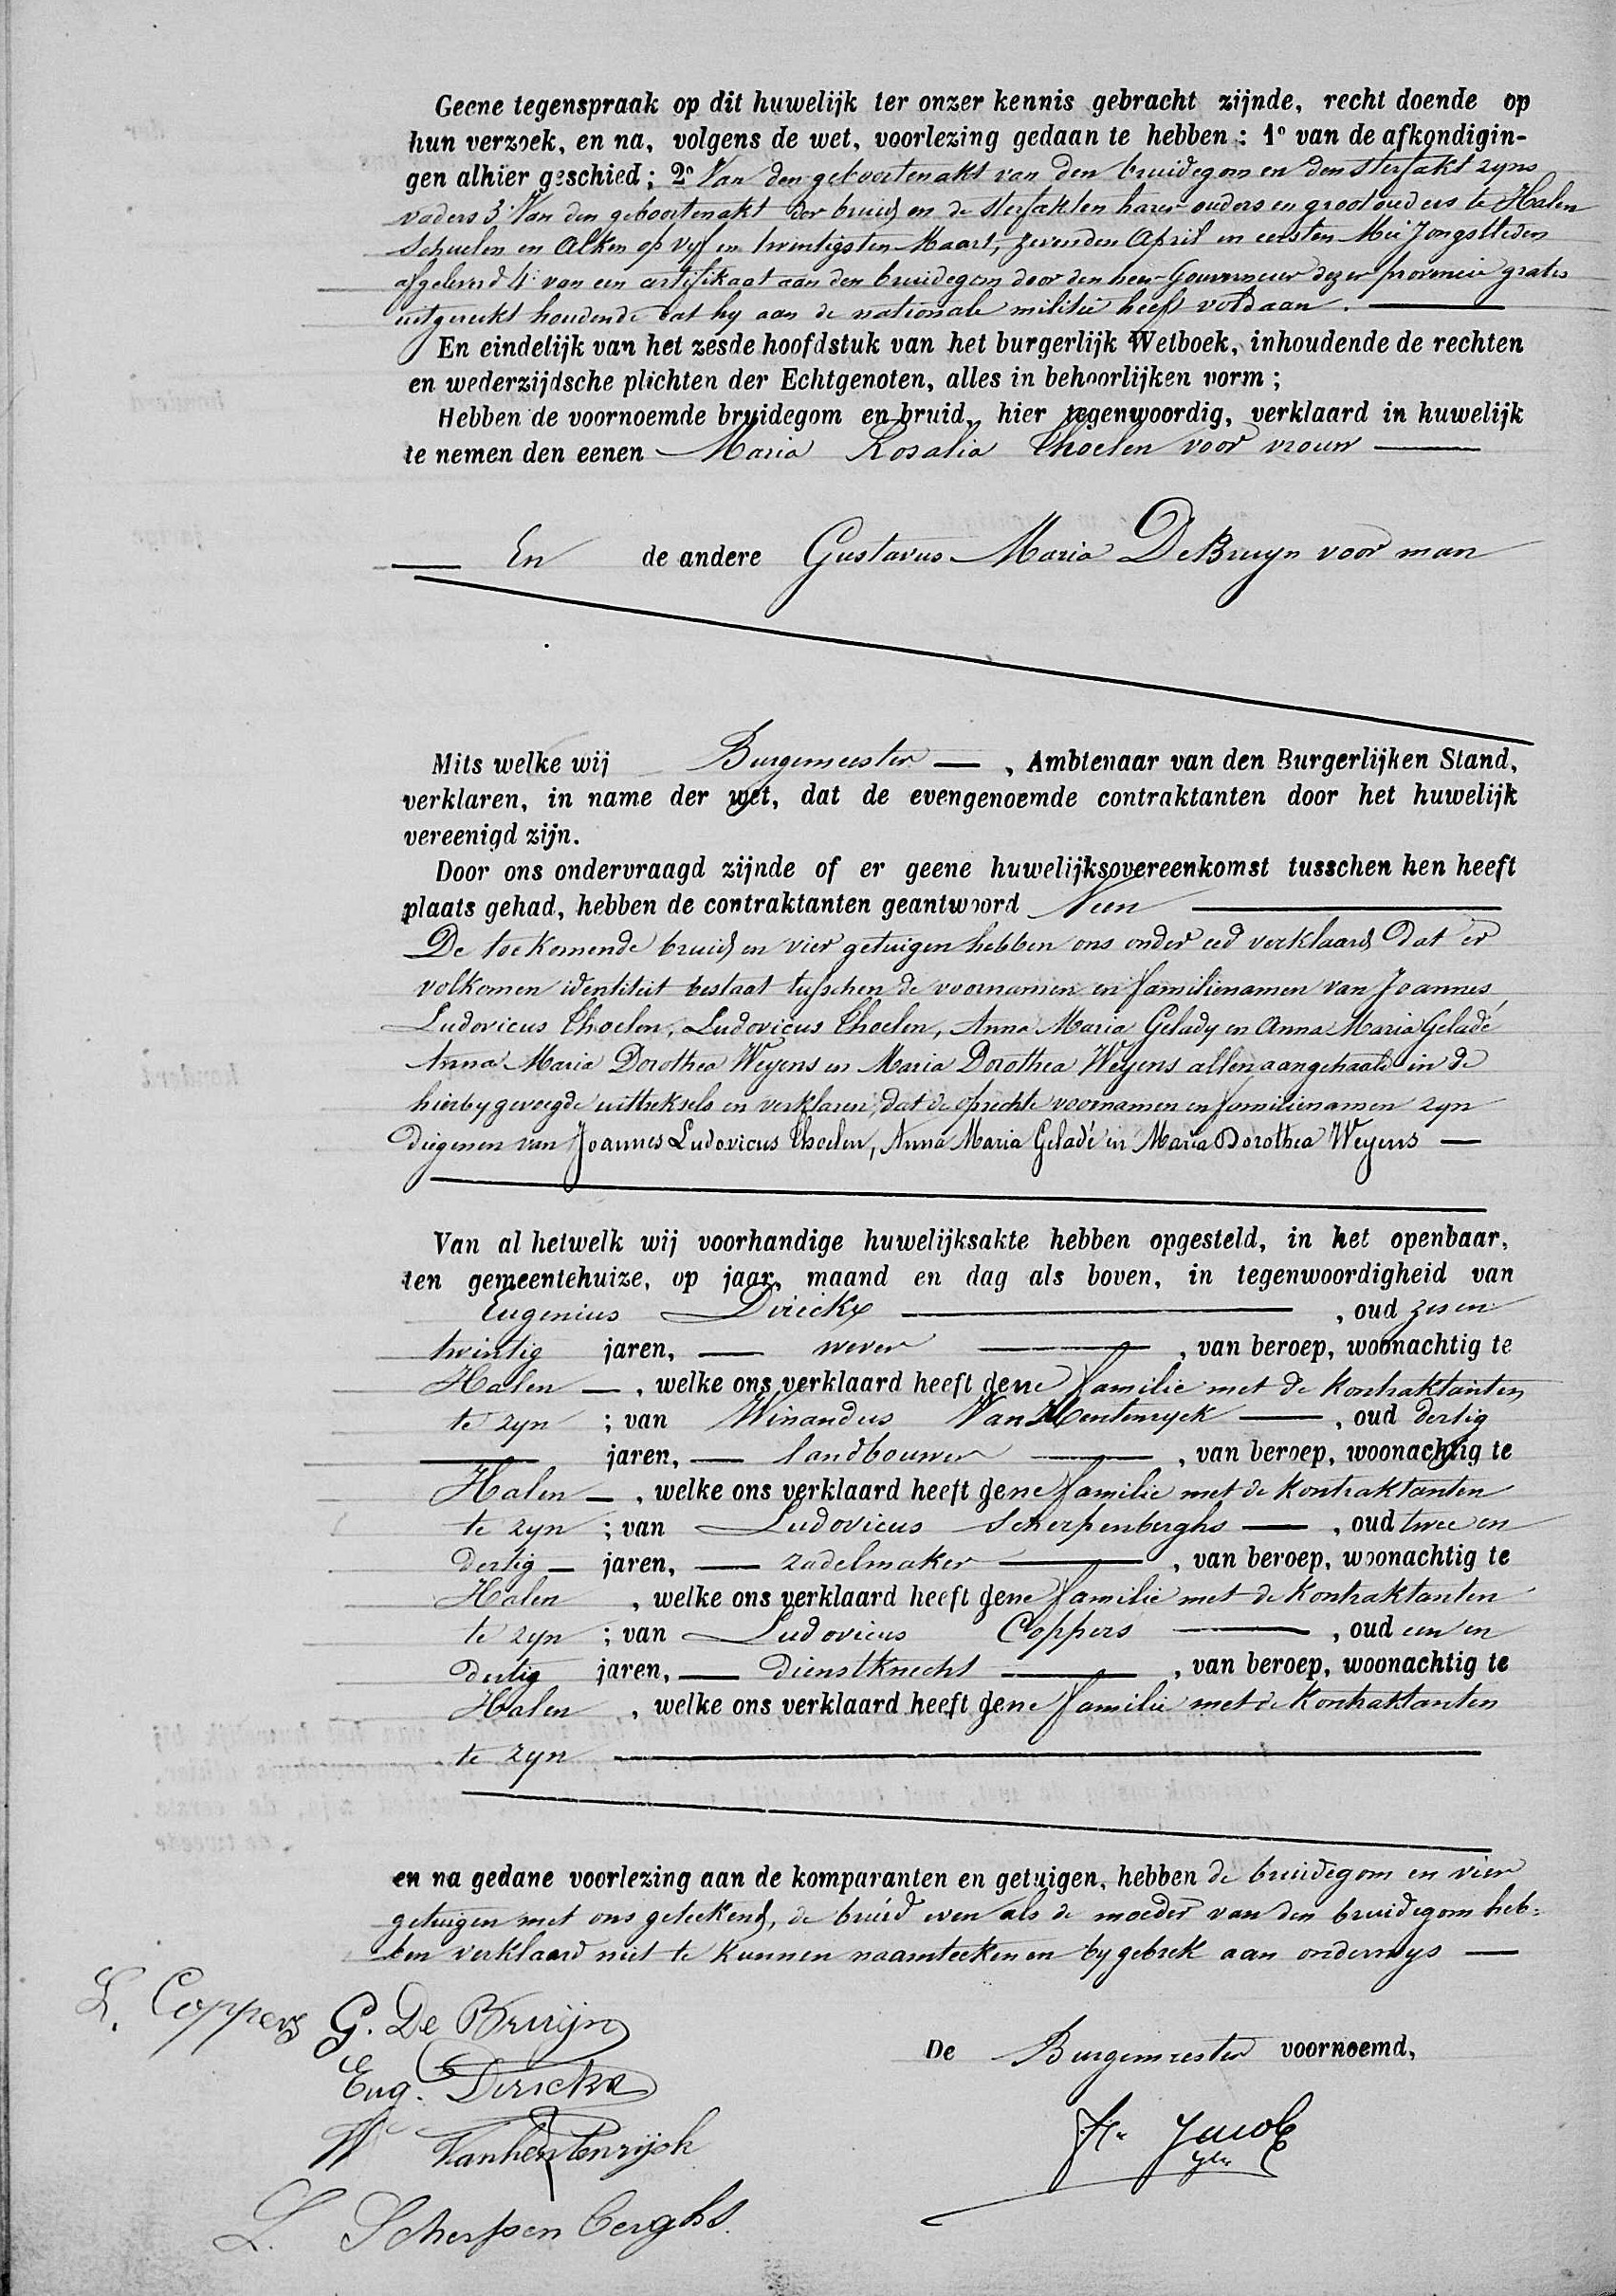 Geene tegenspraak op dit huwelijk ter onzer kennis gebracht zijnde, recht doende op
hun verzoek, en na, volgens de wet, voorlezing gedaan te hebben : 1º van de afkondigin-
gen alhier geschied ; 2º Van den geboortenakt van den bruidegom en den sterfakt zyns
vaders 3º Van den geboortenakt der bruid en de sterfakten harer ouders en grootouders te Halen
Schuelen en Alken op vyf en twintigsten Maart, zevenden April en eersten Mei Jongstleden
afgeleverd 4º van een certifikaat aan den bruidegom door den heer Gouverneur dezer provincie gratis
uitgereikt houdende dat hy aan de nationale militie heeft voldaan.
En eindelijk van het zesde hoofdstuk van het burgerlijk Wetboek, inhoudende de rechten
en wederzijdsche plichten der Echtgenoten, alles in behoorlijken vorm ;
Hebben de voornoemde bruidegom en bruid, hier tegenwoordig, verklaard in huwelijk
te nemen den eenen Maria Rosalia Thoelen voor vrouw
En de andere Gustavus Maria De Bruyn voor man
Mits welke wij Burgemeester, Ambtenaar van den Burgerlijken Stand,
verklaren, in name der wet, dat de evengenoemde contraktanten door het huwelijk
vereenigd zijn.
Door ons ondervraagd zijnde of er geene huwelijksovereenkomst tusschen hen heeft
plaats gehad, hebben de contraktanten geantwoord Neen
De toekomende bruid en vier getuigen hebben ons onder eed verklaard dat er
volkomen identiteit bestaat tusschen de voornamen en familienamen van Joannes
Ludovicus Thoelen, Ludovicus Thoelen, Anna Maria Gelady en Anna Maria Geladé
Anna Maria Dorothea Weyens en Maria Dorothea Weyens allen aangehaald in de
hierbygevoegde uittreksels en verklaren dat de oprechte voornamen en familienamen zyn
diegenen van Joannes Ludovicus Thoelen, Anna Maria Geladé en Maria Dorothea Weyens
Van al hetwelk wij voorhandige huwelijksakte hebben opgesteld, in het openbaar,
ten gemeentehuize, op jaar, maand en dag als boven, in tegenwoordigheid van
Eugenius Dirickx, oud zes en
twintig jaren, wever, van beroep, woonachtig te
Halen, welke ons verklaard heeft gene familie met de kontraktanten
te zyn ; van Winandus Van Hentenryck, oud dertig
jaren, landbouwer, van beroep, woonachtig te
Halen, welke ons verklaard heeft gene familie met de kontraktanten
te zyn ; van Ludovicus Scherpenberghs, oud twee en
dertig jaren, zadelmaker, van beroep, woonachtig te
Halen, welke ons verklaard heeft gene familie met de kontraktanten
te zyn ; van Ludovicus Coppers, oud een en
dertig jaren, dienstknecht, van beroep, woonachtig te
Halen, welke ons verklaard heeft gene familie met de kontraktanten
te zyn
en na gedane voorlezing aan de komparanten en getuigen, hebben de bruidegom en vier
getuigen met ons geteekend, de bruid even als de moeder van den bruidegom heb-
ben verklaard niet te kunnen naamteekenen by gebrek aan onderwys
L. Coppers G. De Bruijn
De Burgemeester voornoemd,
Eug. Dirickx
W Vanhentenrijck
L. Scherpenberghs.